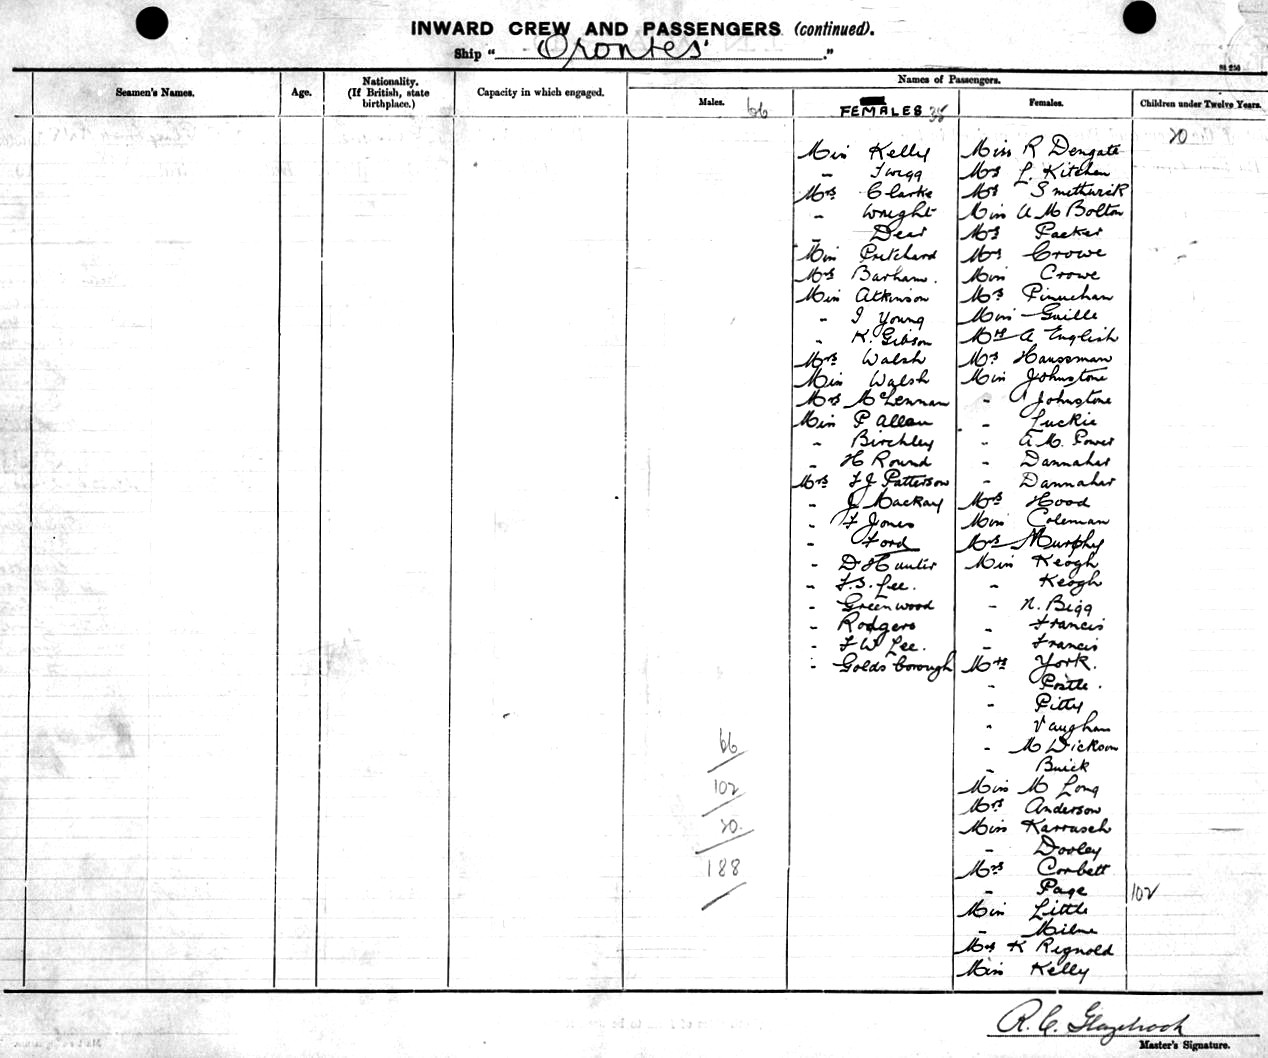 INWARD CREW AND PASSENGERS (continued).
Ship "Orontes."
Seamen's Names.
Age.
Nationality.
(If British, state
birthplace.)
Capacity in which engaged.
Names of Passengers.
Males. 66
FEMALES 38
Females.
Children under Twelve Years.
20
Miss Kelly
" Twigg
Mrs Clarke
" Wright
" Dear
Miss Pritchard
Mrs Barham.
Miss Atkinson
" I Young
" K. Gibson
Mrs Walsh
Miss Walsh
Mrs McLennan
Miss P Allan
" Birchley
" H Round
Mrs F J Patterson
" J Mackay
" F Jones
" Ford
" D Hunter
" F. S. Lee.
" Greenwood
" Rodgers
" F W Lee.
" Goldsborough
Miss R Dengate
Mrs L. Kitchen
Mrs Smethwick
Miss A M Bolton
Mrs Packer
Mrs Crowe
Miss Crowe
Mrs
Miss Guille
Mrs A English
Mrs Haussman
Miss Johnstone
" A Johnstone
" Luckie
" A. M. Power
" Dannaher
" Dannaher
Mrs Hood
Miss Coleman
Mrs Murphy
Miss Keogh
" Keogh
" N. Bigg
" Francis
" Francis
Mrs York.
" Postle.
" Pitty
" Vaughan
" M Dickson
" Buick
Miss M Long
Mrs Anderson
Miss Karrasch
" Dooley
Mrs Corbett
" Page
Miss Little
" Milne
Mrs K Rignold
Miss Kelly
102
66
102
20.
188
R. C. Glazebrook
Master's Signature.